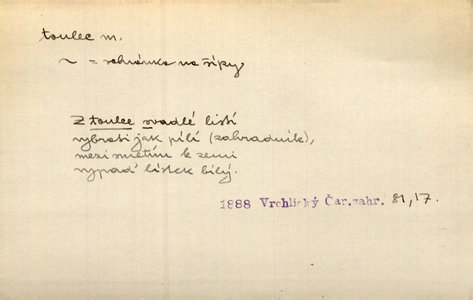 toulec m.
~ = schránka na šípy
Z toulce svadlé listí
vybrati jak pílí (zahradník),
mezi smetím k zemi
vypad' lístek bílý.
1888 Vrchlický Čar.zahr. 81,17.